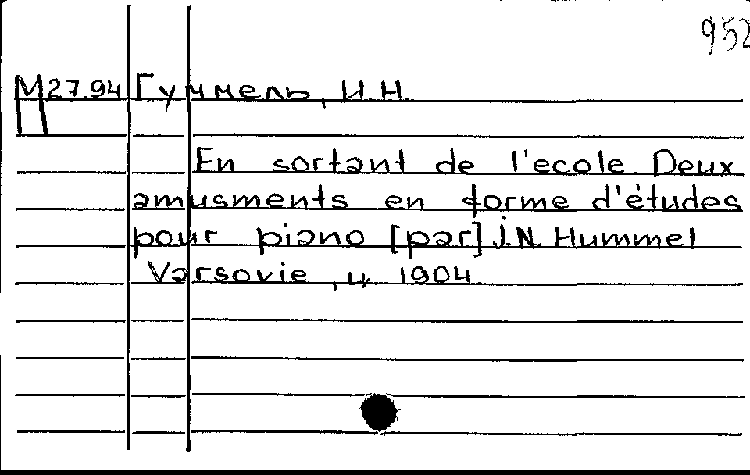 952
М27.94 Гуммель, И.Н.
П
En sortant de l'ecole. Deux
amusments en forme d'études
pour piano [par] J.N. Hummel
Varsovie, ц. 1904.